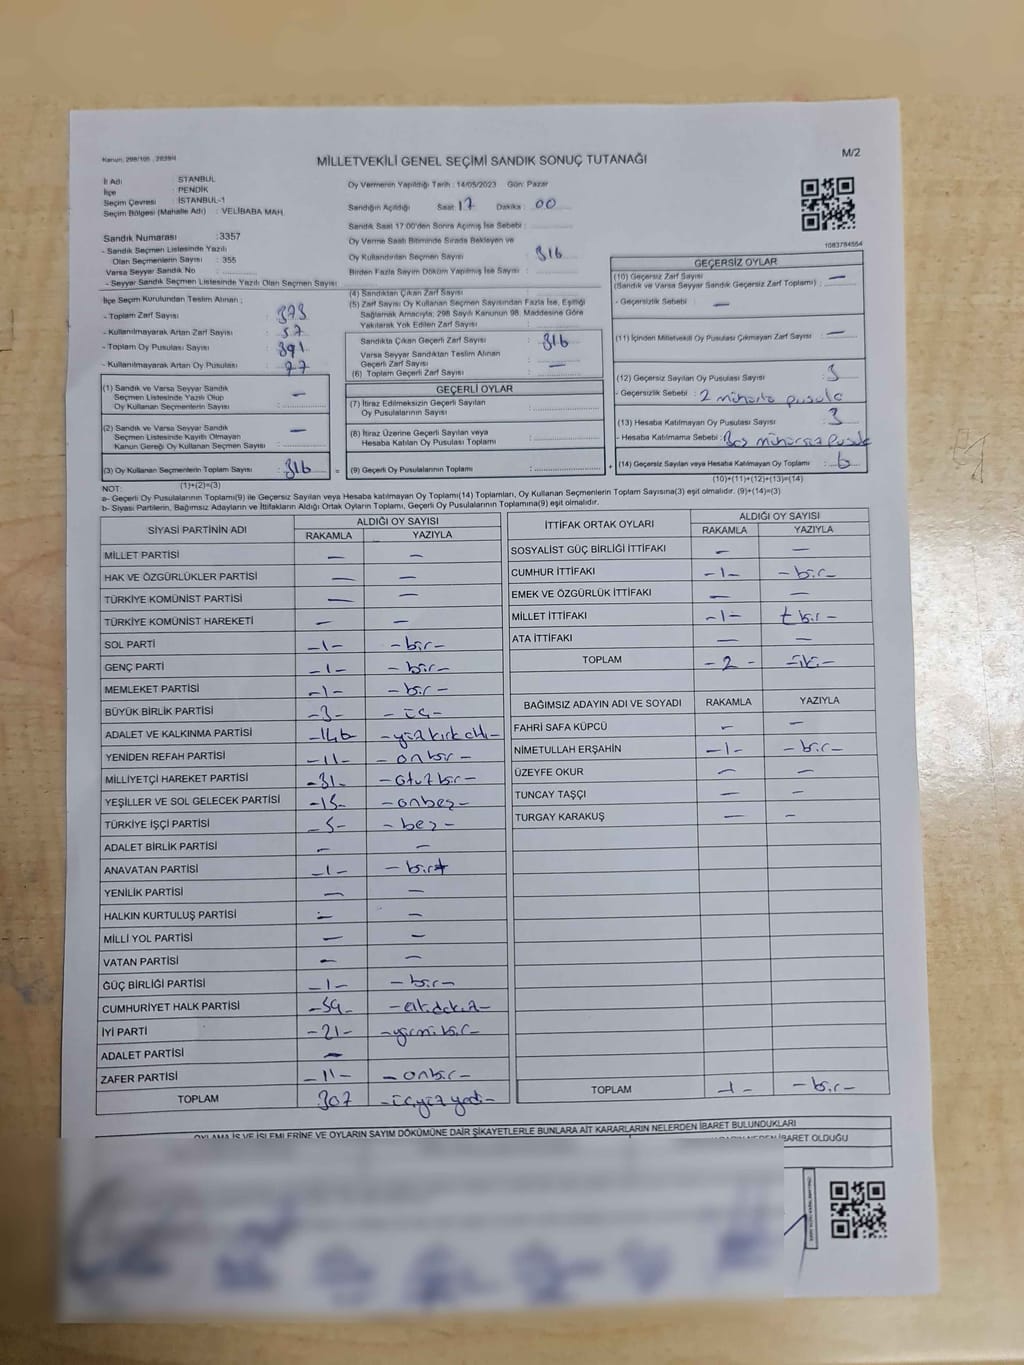 Kanun: 298/105 , 2839/4
MİLLETVEKİLİ GENEL SEÇİMİ SANDIK SONUÇ TUTANAĞI
M/2
İl Adı : STANBUL
İlçe : PENDİK
Seçim Çevresi : İSTANBUL-1
Seçim Bölgesi (Mahalle Adı) : VELİBABA MAH.
Oy Vermenin Yapıldığı Tarih : 14/05/2023 Gün: Pazar
Sandığın Açıldığı Saat: 17 Dakika : 00
Sandık Saat 17:00'den Sonra Açılmış İse Sebebi :
Oy Verme Saati Bitiminde Sırada Bekleyen ve
Oy Kullandırılan Seçmen Sayısı : 316
Birden Fazla Sayım Döküm Yapılmış İse Sayısı :
1083784554
Sandık Numarası : 3357
- Sandık Seçmen Listesinde Yazılı
Olan Seçmenlerin Sayısı : 355
Varsa Seyyar Sandık No :
- Seyyar Sandık Seçmen Listesinde Yazılı Olan Seçmen Sayısı :
İlçe Seçim Kurulundan Teslim Alınan ;
- Toplam Zarf Sayısı : 373
- Kullanılmayarak Artan Zarf Sayısı : 57
- Toplam Oy Pusulası Sayısı : 391
- Kullanılmayarak Artan Oy Pusulası :
(1) Sandık ve Varsa Seyyar Sandık
Seçmen Listesinde Yazılı Olup
Oy Kullanan Seçmenlerin Sayısı : —
(2) Sandık ve Varsa Seyyar Sandık
Seçmen Listesinde Kayıtlı Olmayan
Kanun Gereği Oy Kullanan Seçmen Sayısı : —
(3) Oy Kullanan Seçmenlerin Toplam Sayısı : 316
(1)+(2)=(3)
(4) Sandıktan Çıkan Zarf Sayısı :
(5) Zarf Sayısı Oy Kullanan Seçmen Sayısından Fazla İse, Eşitliği
Sağlamak Amacıyla; 298 Sayılı Kanunun 98. Maddesine Göre
Yakılarak Yok Edilen Zarf Sayısı :
Sandıkta Çıkan Geçerli Zarf Sayısı : 316
Varsa Seyyar Sandıktan Teslim Alınan
Geçerli Zarf Sayısı : —
(6) Toplam Geçerli Zarf Sayısı :
GEÇERLİ OYLAR
(7) İtiraz Edilmeksizin Geçerli Sayılan
Oy Pusulalarının Sayısı :
(8) İtiraz Üzerine Geçerli Sayılan veya
Hesaba Katılan Oy Pusulası Toplamı :
= (9) Geçerli Oy Pusulalarının Toplamı :
GEÇERSİZ OYLAR
(10) Geçersiz Zarf Sayısı
(Sandık ve Varsa Seyyar Sandık Geçersiz Zarf Toplamı) : —
- Geçersizlik Sebebi : —
(11) İçinden Milletvekili Oy Pusulası Çıkmayan Zarf Sayısı : —
(12) Geçersiz Sayılan Oy Pusulası Sayısı : 3
- Geçersizlik Sebebi : 2 mühürlü pusula
(13) Hesaba Katılmayan Oy Pusulası Sayısı : 3
- Hesaba Katılmama Sebebi : Boş mühürsüz pusula
+ (14) Geçersiz Sayılan veya Hesaba Katılmayan Oy Toplamı : 6
(10)+(11)+(12)+(13)=(14)
NOT:
a- Geçerli Oy Pusulalarının Toplamı(9) ile Geçersiz Sayılan veya Hesaba katılmayan Oy Toplamı(14) Toplamları, Oy Kullanan Seçmenlerin Toplam Sayısına(3) eşit olmalıdır. (9)+(14)=(3)
b- Siyasi Partilerin, Bağımsız Adayların ve İttifakların Aldığı Ortak Oyların Toplamı, Geçerli Oy Pusulalarının Toplamına(9) eşit olmalıdır.
SİYASİ PARTİNİN ADI ALDIĞI OY SAYISI
RAKAMLA YAZIYLA
MİLLET PARTİSİ — —
HAK VE ÖZGÜRLÜKLER PARTİSİ — —
TÜRKİYE KOMÜNİST PARTİSİ — —
TÜRKİYE KOMÜNİST HAREKETİ — —
SOL PARTİ -1- -bir-
GENÇ PARTİ -1- -bir-
MEMLEKET PARTİSİ -1- -bir-
BÜYÜK BİRLİK PARTİSİ -3- -üç-
ADALET VE KALKINMA PARTİSİ -146 -yüz kırk altı-
YENİDEN REFAH PARTİSİ -11- -onbir-
MİLLİYETÇİ HAREKET PARTİSİ -31- -otuz bir-
YEŞİLLER VE SOL GELECEK PARTİSİ -15- -onbeş-
TÜRKİYE İŞÇİ PARTİSİ -5- -beş-
ADALET BİRLİK PARTİSİ — —
ANAVATAN PARTİSİ -1- -bir
YENİLİK PARTİSİ — —
HALKIN KURTULUŞ PARTİSİ — —
MİLLİ YOL PARTİSİ — —
VATAN PARTİSİ — —
GÜÇ BİRLİĞİ PARTİSİ -1- -bir-
CUMHURİYET HALK PARTİSİ -59-
İYİ PARTİ -21- -yirmi bir-
ADALET PARTİSİ —
ZAFER PARTİSİ -11- -onbir-
TOPLAM 307 -üçyüz yedi-
İTTİFAK ORTAK OYLARI ALDIĞI OY SAYISI
RAKAMLA YAZIYLA
SOSYALİST GÜÇ BİRLİĞİ İTTİFAKI — —
CUMHUR İTTİFAKI -1- -bir-
EMEK VE ÖZGÜRLÜK İTTİFAKI — —
MİLLET İTTİFAKI -1- bir-
ATA İTTİFAKI — —
TOPLAM -2- -iki-
BAĞIMSIZ ADAYIN ADI VE SOYADI RAKAMLA YAZIYLA
FAHRİ SAFA KÜPCÜ — —
NİMETULLAH ERŞAHİN -1- -bir-
ÜZEYFE OKUR — —
TUNCAY TAŞÇI — —
TURGAY KARAKUŞ — —
TOPLAM -1- -bir-
OYLAMA İŞ VE İŞLEMLERİNE VE OYLARIN SAYIM DÖKÜMÜNE DAİR ŞİKAYETLERLE BUNLARA AİT KARARLARIN NELERDEN İBARET BULUNDUKLARI
İBARET OLDUĞU